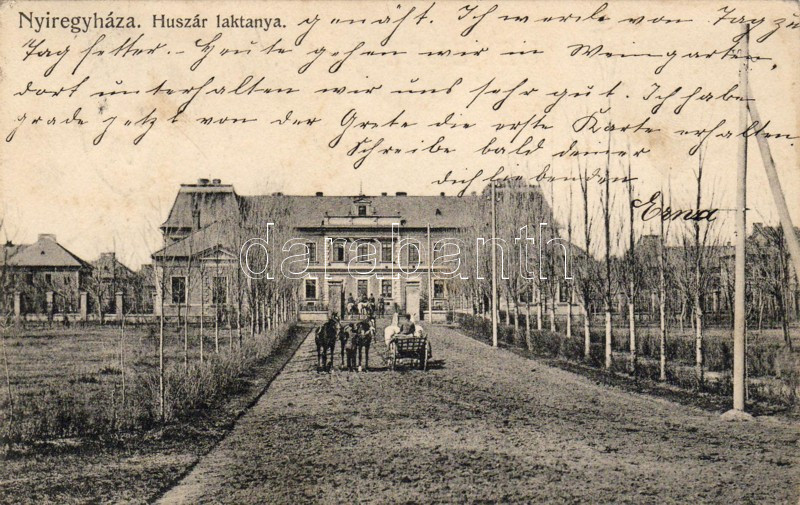 Nyiregyháza. Huszár laktanya.
genäht. Ich werde von Tag zu
Tag fetter. - Heute gehen wir in Weingarten,
dort unterhalten wir uns sehr gut. Ich habe
grade jetzt von der Grete die erste Karte erhalten.
Schreibe bald deiner
dich liebenden
Erna
darabanth